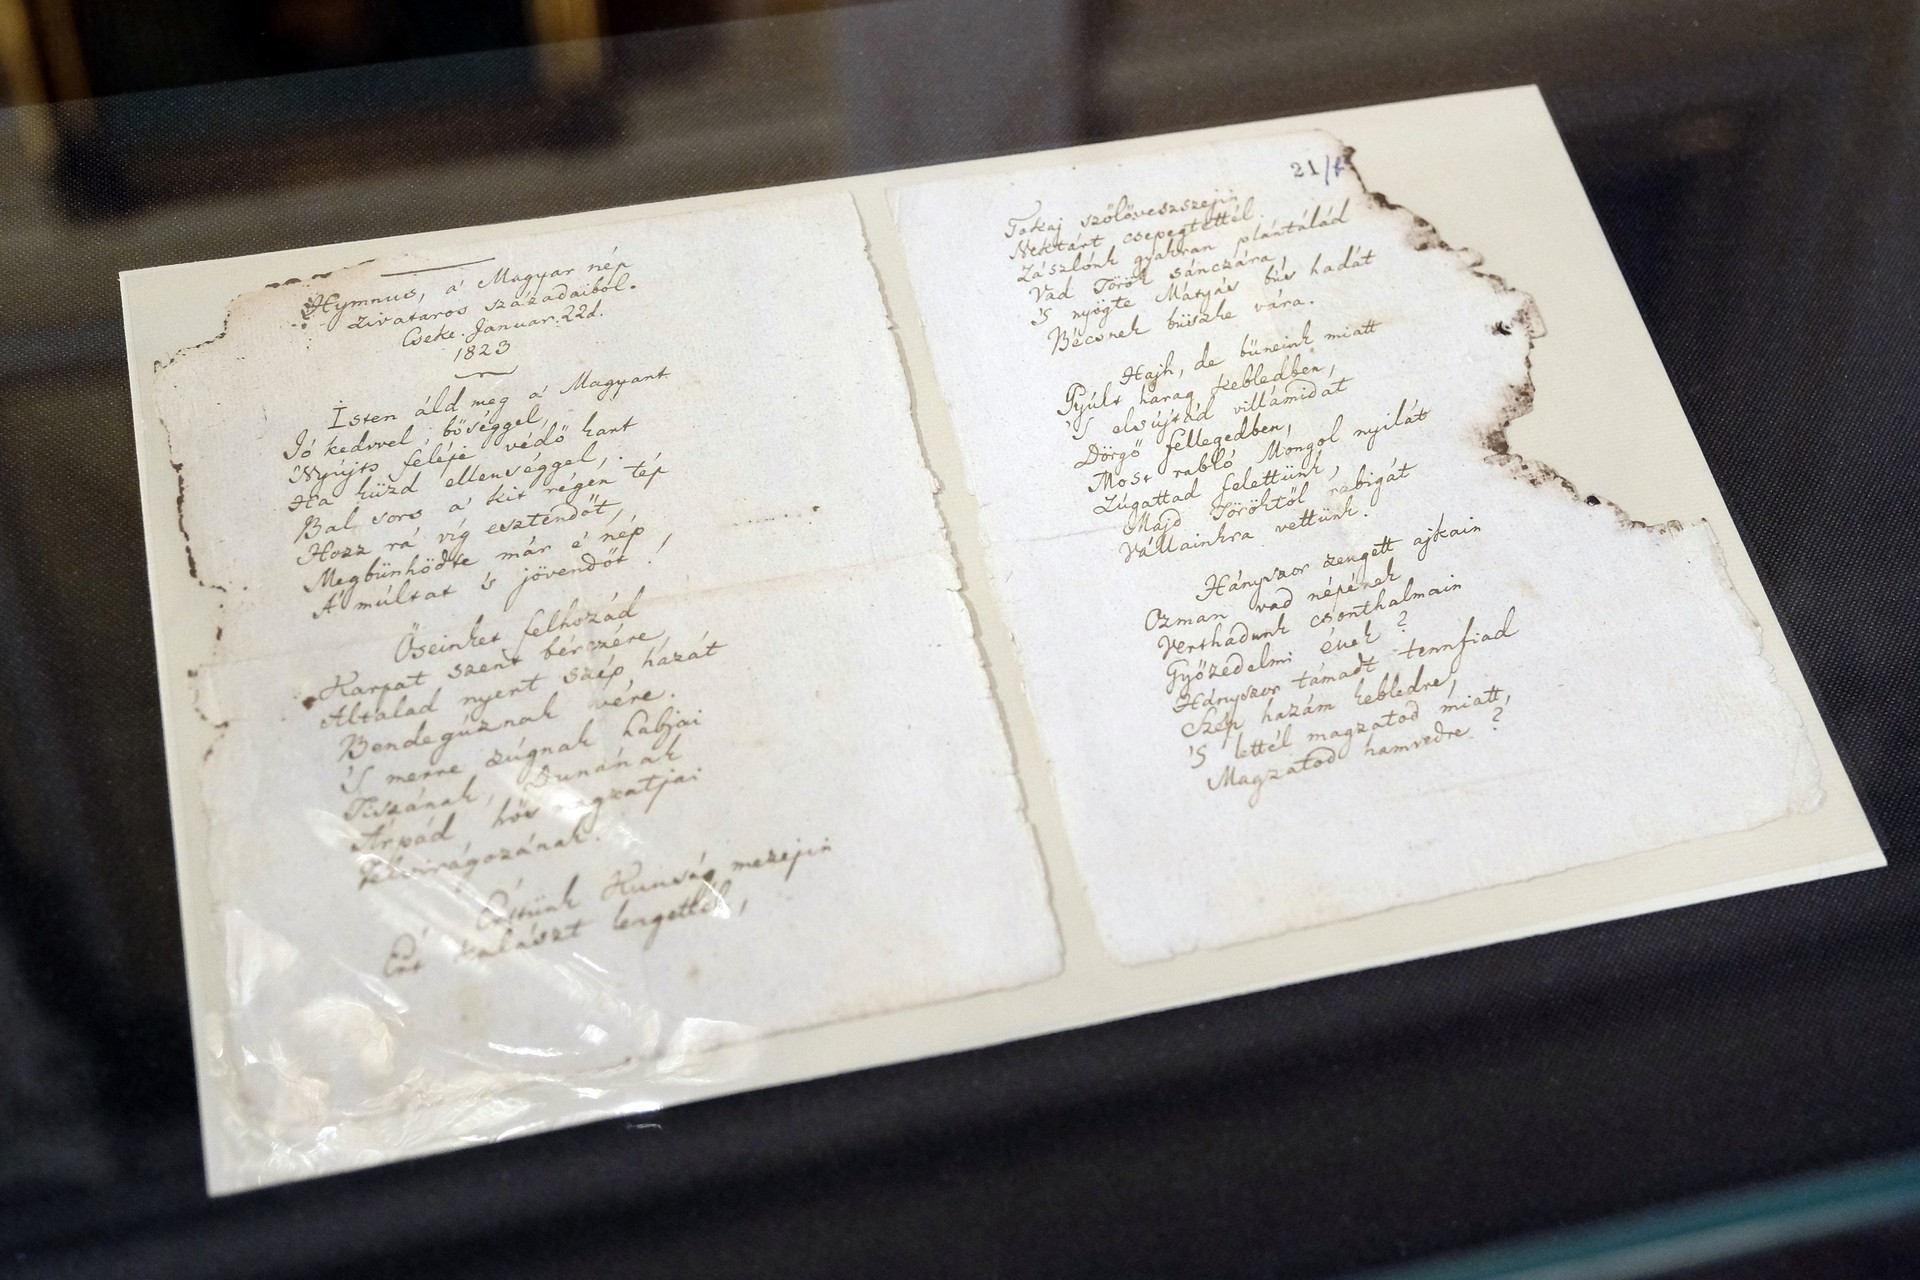 Hymnus, a' Magyar nép
zivataros századaiból.
Cseke. Januar. 22d.
1823
Isten áld meg a' Magyart
Jó kedvvel, bőséggel,
Nyújts feléje védő kart
Ha küzd ellenséggel,
Bal sors a' kit régen tép
Hozz rá víg esztendőt,
Megbünhödte már e' nép
A' múltat 's jövendőt!
Őseinket felhozád
Karpat szent bérczére,
Altalad nyert szép hazát
Bendegúznak vére.
'S merre zúgnak habjai
Tiszának, Dunának
Árpád hős magzatjai
Felvirágozának.
Értünk Kunság mezejin
Ért kalászt lengettél,
21/
Tokaj szőlőveszszejin
Nektárt csepegtettél.
Zászlónk gyakran plántálád
Vad Török sánczára,
'S nyögte Mátyás bús hadát
Bécsnek büszke vára.
Hajh, de büneink miatt
Gyúlt harag kebledben,
'S elsújtád villámidat
Dörgő fellegedben,
Most rabló Mongol nyilát
Zúgattad felettünk,
Majd Töröktől rabigát
Vállainkra vettünk.
Hányszor zengett ajkain
Ozman vad népének
Verthadunk csonthalmain
Győzedelmi ének?
Hányszor támadt tennfiad
Szép hazám kebledre,
'S lettél magzatod miatt,
Magzatod hamvedre?